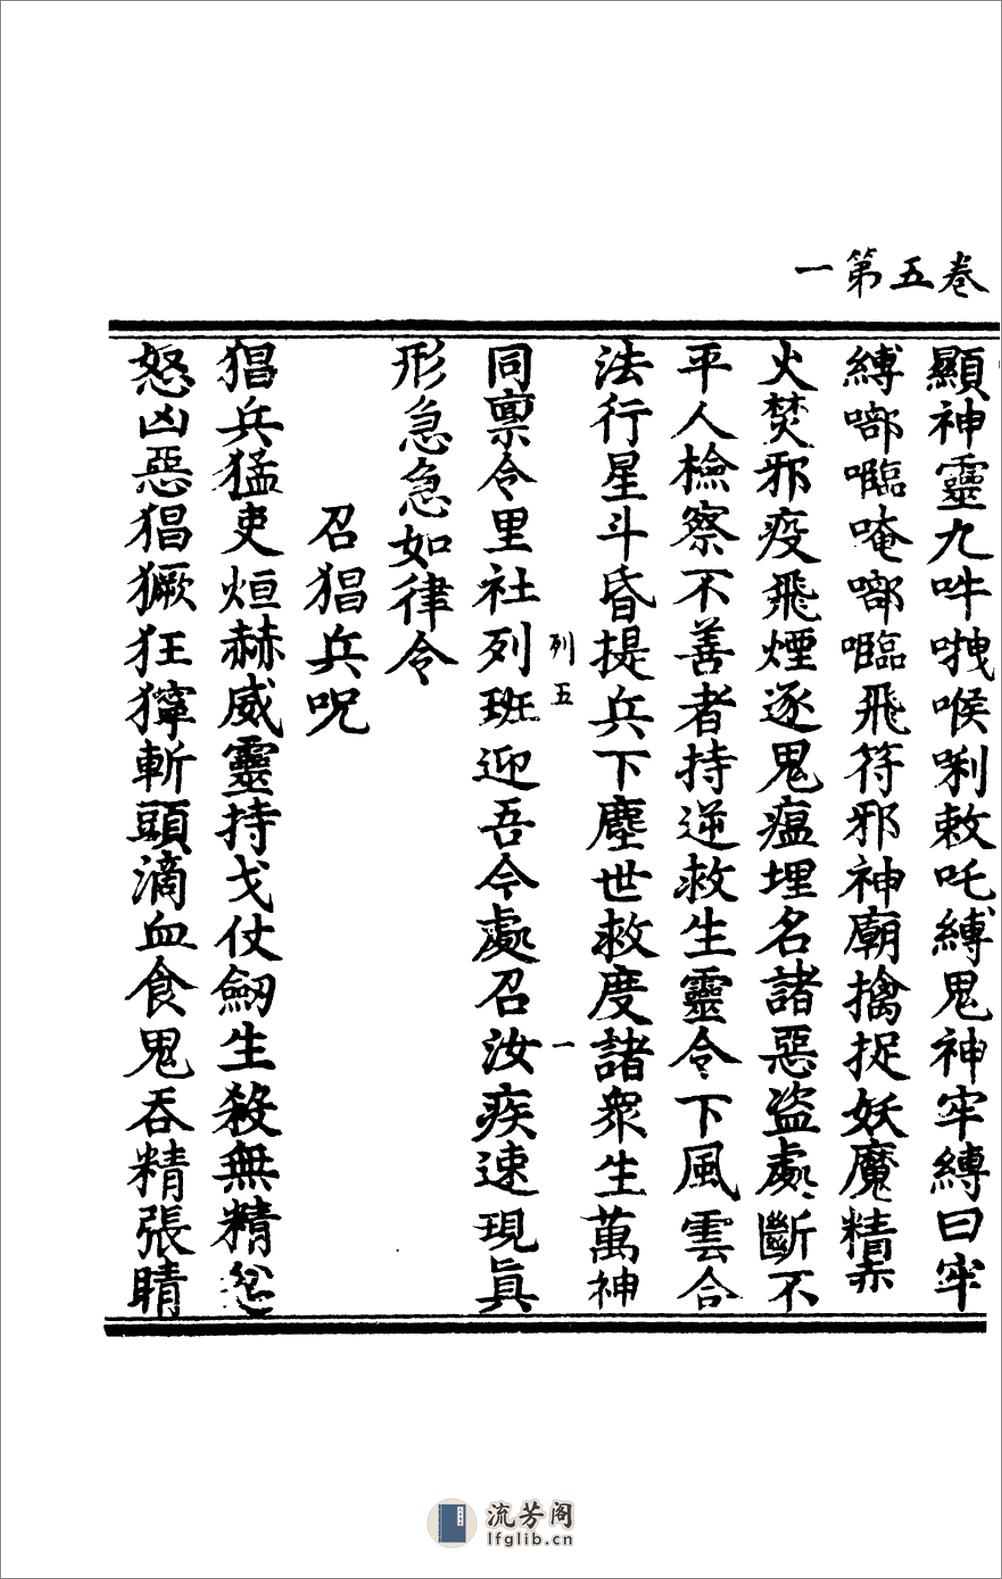 卷五第一
顯神靈九吽㗨喉唎敕吒縛鬼神牢縛曰牢
縛啷㘕唵啷㘕飛符邪神廟擒捉妖魔精赤
火焚邪疫飛煙逐鬼瘟埋名諸惡盜處斷不
平人檢察不善者持逆救生靈令下風雲合
法行星斗昏提兵下塵世救度諸衆生萬神
列五 一
同稟令里社列班迎吾今處召汝疾速現眞
形急急如律令
召猖兵呪
猖兵猛吏烜赫威靈持戈仗劒生殺無精忿
怒凶惡猖獗狂獰斬頭滴血食鬼吞精張睛
流芳阁
lfglib.cn